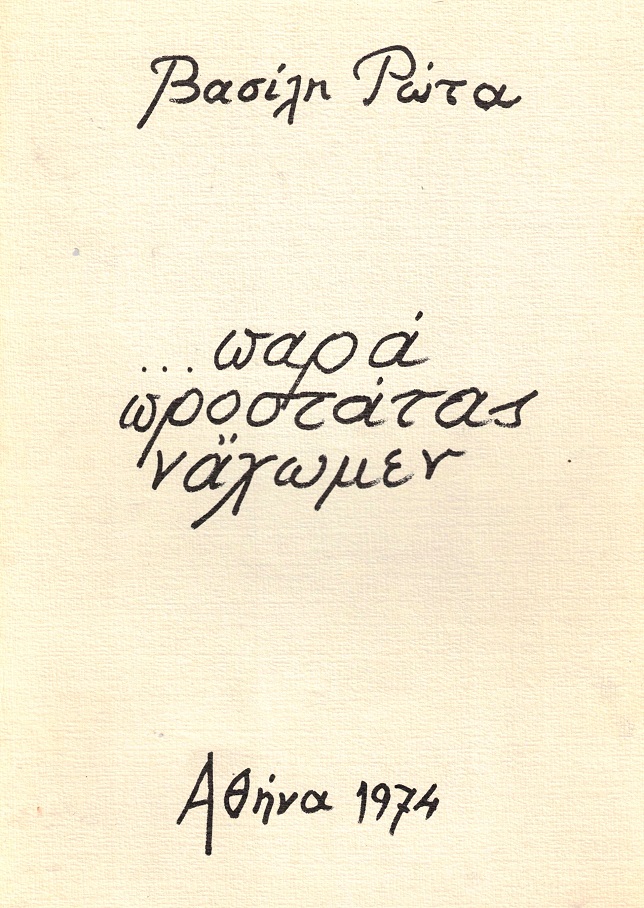 Βασίλη Ρώτα
...παρά
προστάτας
νἄχωμεν
Αθήνα 1974